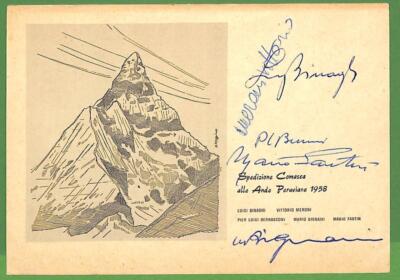 Meroni Vittorio
Luigi Binaghi
P L Bernasconi
Mario Fantin
Spedizione Comasca
alle Ande Peruviane 1958
LUIGI BINAGHI VITTORIO MERONI
PIER LUIGI BERNASCONI MARIO BIGNAMI MARIO FANTIN